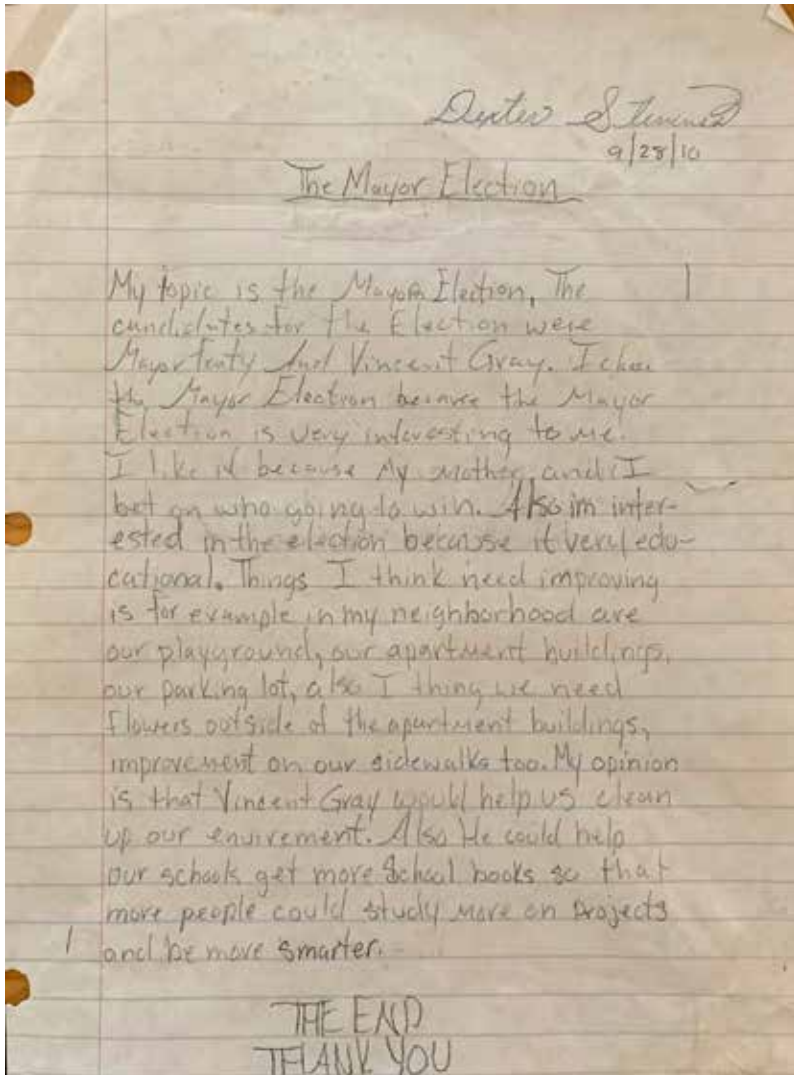 Dexter
9/28/10
The Mayor Election
My topic is the Mayor Election, The
candidates for the Election were
Mayor Fenty And Vincent Gray. I
the Mayor Election because the Mayor
Election is very interesting to me.
I like it because My mother and I
bet on who going to win. Also im inter-
ested in the election because it very edu-
cational. Things I think need improving
is for example in my neighborhood are
our playground, our apartment buildings,
our parking lot, also I thing we need
flowers outside of the apartment buildings,
improvement on our sidewalks too. My opinion
is that Vincent Gray would help us clean
up our envirement. Also He could help
our schools get more School books so that
more people could study more on projects
and be more smarter.
THE END
THANK YOU